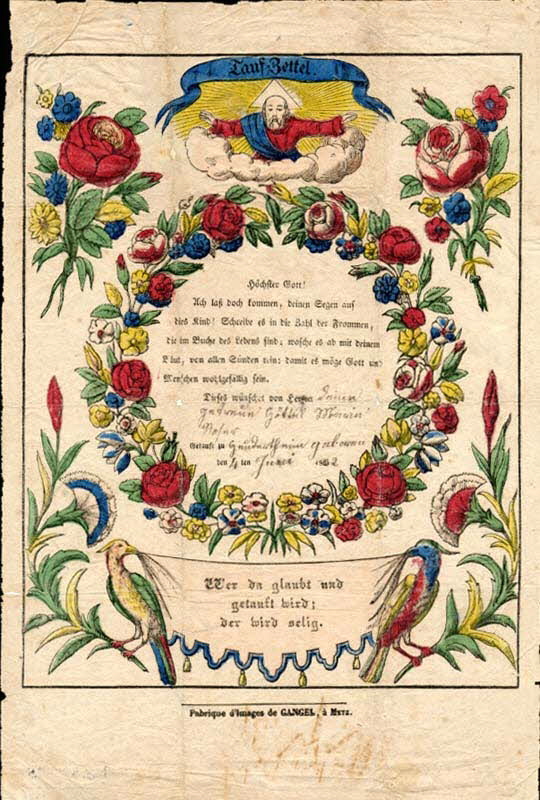 Tauf-Zettel.
Höchster Gott!
Ach laß doch kommen, deinen Segen auf
dies Kind! Schreibe es in die Zahl der Frommen,
die im Buche des Lebens sind; wasche es ab mit deinem
Blut, von allen Sünden rein; damit es möge Gott un
Menschen wohlgefällig sein.
Dieses wünschet von Herzen deine
getreue Göttel
Getauft zu geboren
den 4 ten 18
Wer da glaubt und
getauft wird;
der wird selig.
Fabrique d'Images de GANGEL, à METZ.